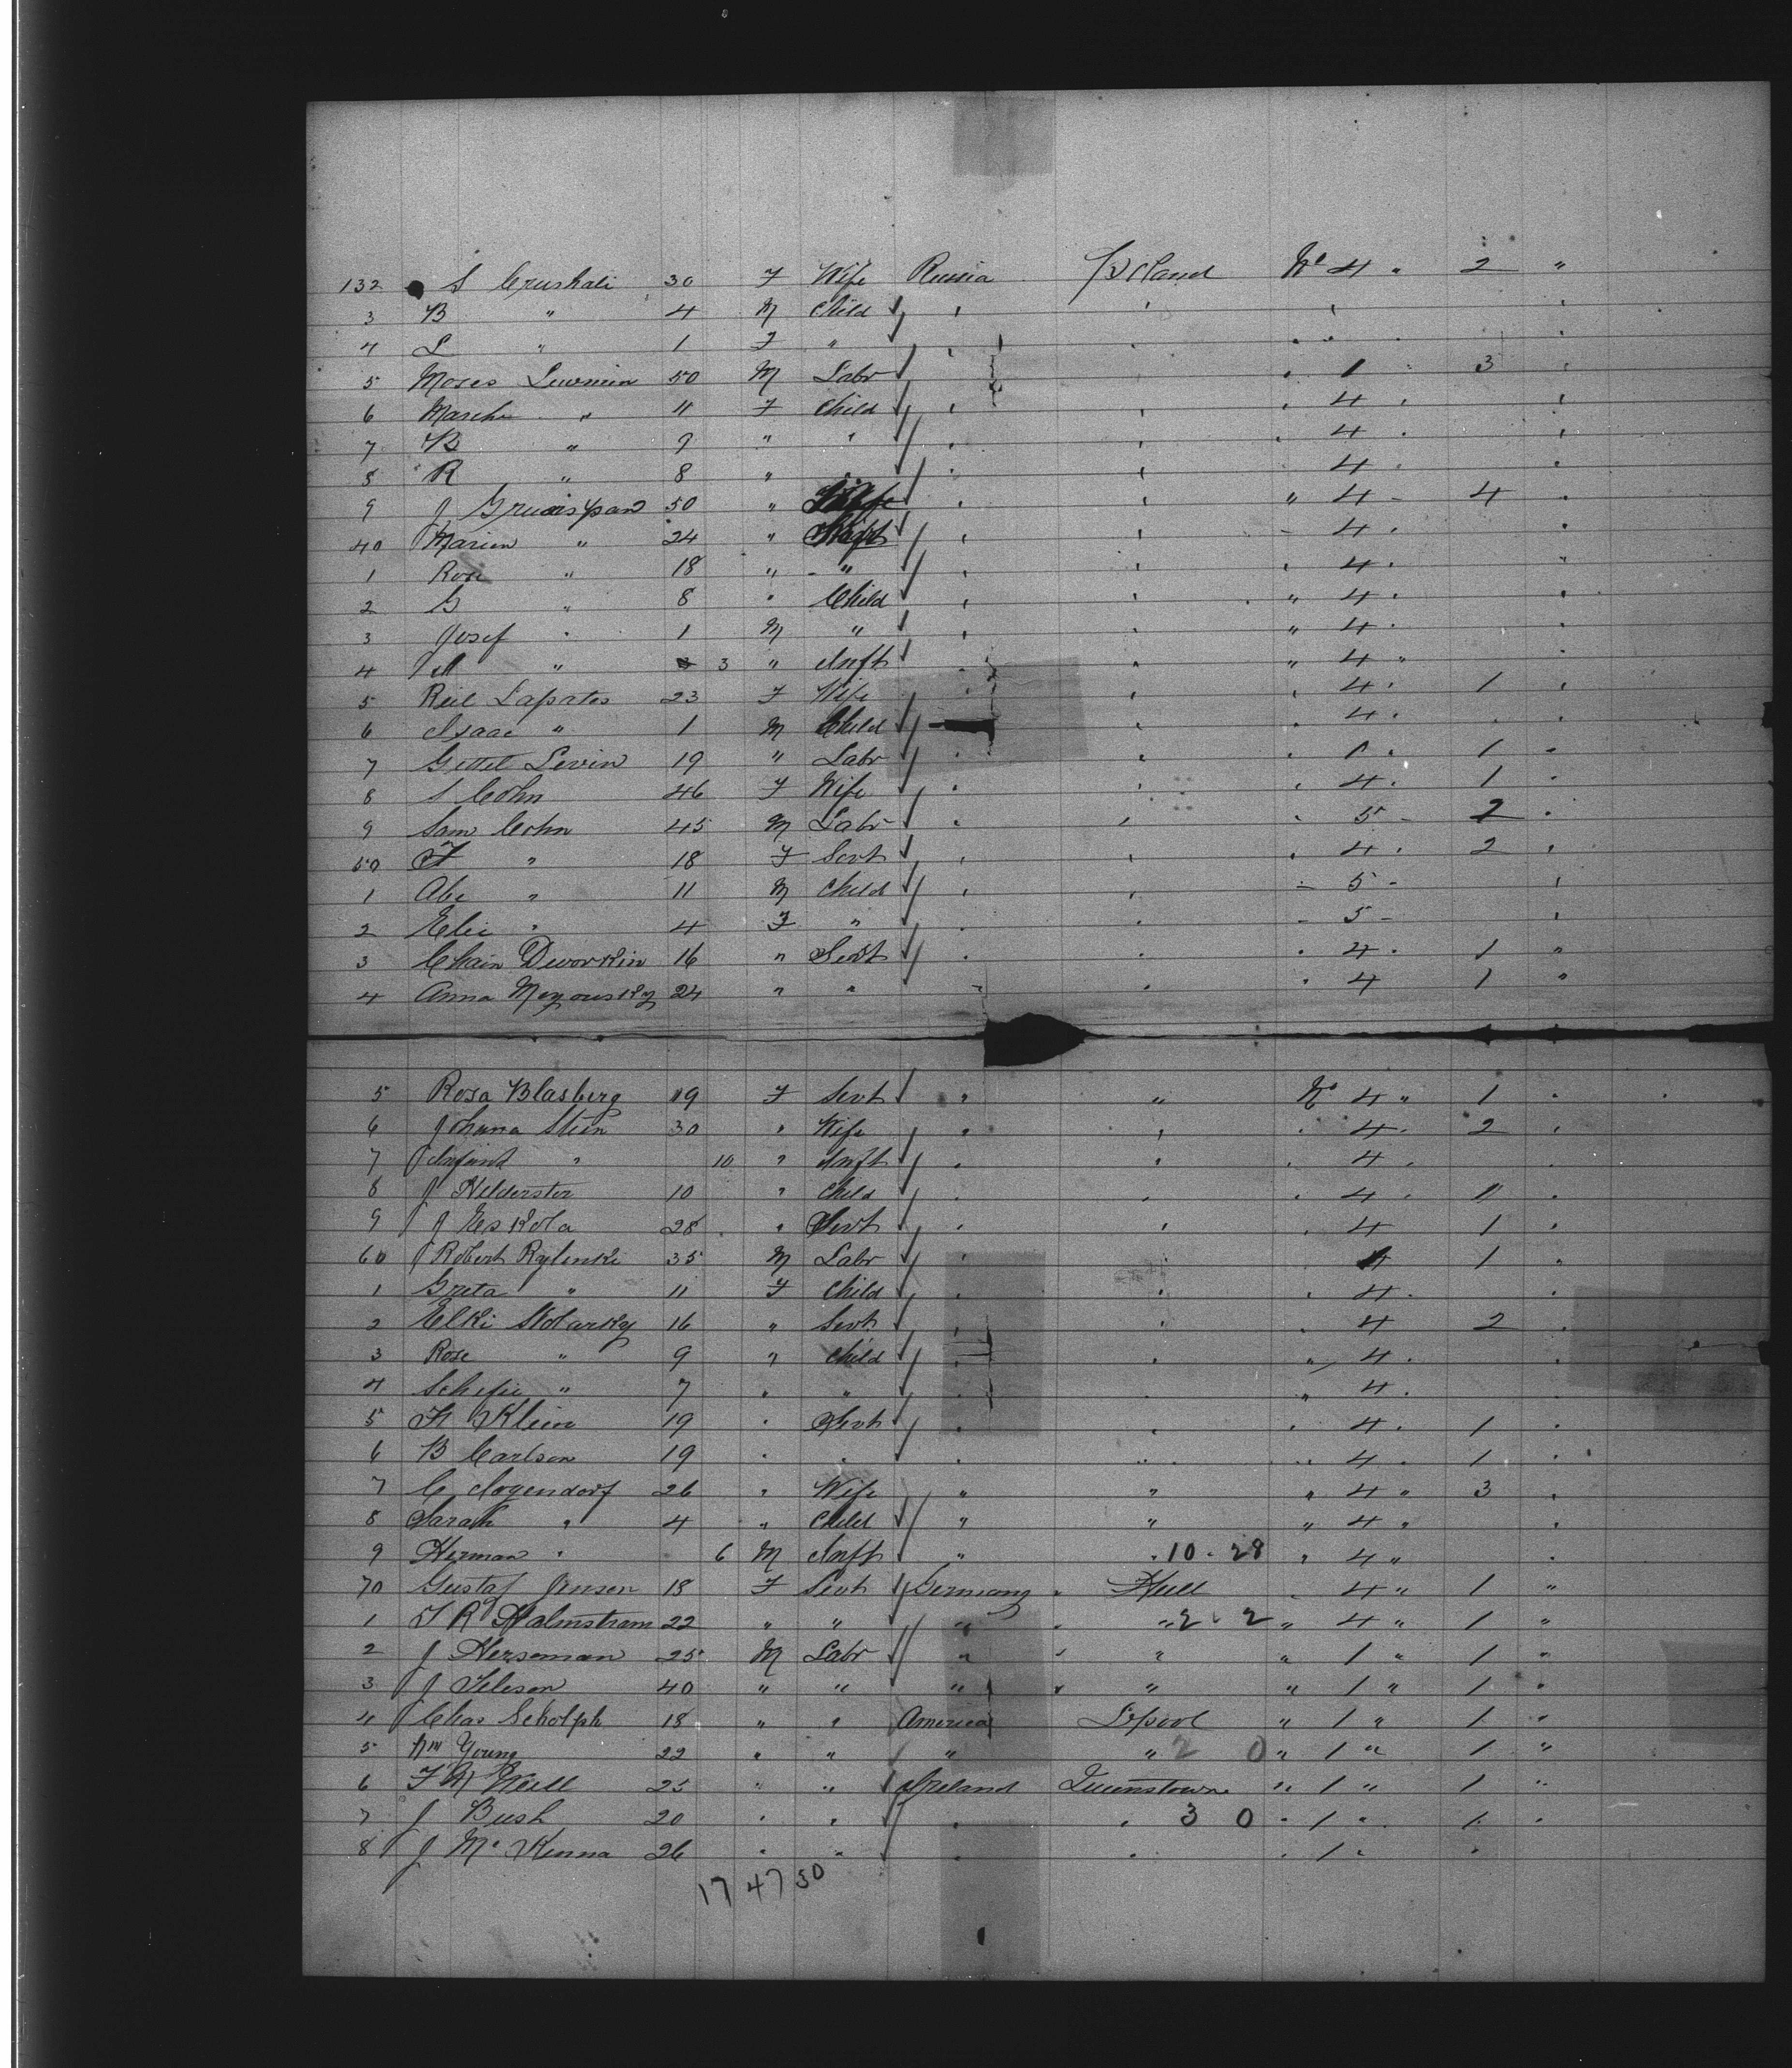 132 S Crushali 30 F Wife Russia Poland No 4 " 2 "
3 B " 4 M Child " " "
4 L " 1 F " " " " "
5 Moses Lewmin 50 M Labr " " " 1 " 3 "
6 Marche " 11 F Child " " " 4 " "
7 B " 9 " " " " " 4 " "
8 R " 8 " " " " 4 " "
9 J Gruaispan 50 " " " " 4 - 4 "
40 Marien " 24 " " " - 4 " "
1 Rose " 18 " - " " " " 4 " "
2 G " 8 " Child " " " 4 " "
3 Josef " 1 M " " " " 4 " "
4 M " 3 " Infts " " " 4 " "
5 Reil Lapates 23 F Wife " " " 4 " 1 "
6 Isaac " 1 M Child " " 4 " "
7 Gettel Levin 19 " Labr " " " 1 " 1 "
8 S Cohn 46 F Wife " " " 4 " 1 "
9 Sam Cohn 45 M Labr " " " 5 - 2 "
50 F " 18 F Servt " " " 4 " 2 "
1 Abe " 11 M Child " " - 5 - "
2 Elie " 4 F " " " - 5 - "
3 Chain Dworkin 16 " Servt " " " 4 " 1 "
4 Anna Meyousky 24 " " " " " 4 1 "
5 Rosa Blasberg 19 F Servt " " No 4 " 1 "
6 Johana Stein 30 " Wife " " " 4 " 2 "
7 Infant " 10 " Infts " " " 4 "
8 J Helderster 10 " Child " " " 4 " 1 "
9 J Eskola 28 " Servt " " " 4 1 "
60 Robert Rylenki 35 M Labr " " 4 1 "
1 Greta " 11 F Child " " " 4 " "
2 Elki Stolarky 16 " Servt " " " 4 2 "
3 Rose " 9 " Child " " " 4 " "
4 Schefie " 7 " " " " " 4 " "
5 F Klein 19 " Servt " " " 4 " 1 "
6 B Carlson 19 " " " " " 4 " 1 "
7 C Jogendorf 26 " Wife " " " 4 " 3 "
8 Sarah " 4 " Child " " " 4 " "
9 Herman " 6 M Infts " " 10 " 28 " 4 " "
70 Gustaf Jensen 18 F Servt Germany " Hull " 4 " 1 "
1 T R Halmstram 22 " " " " " 2 " 2 " 4 " 1 "
2 J Herseman 25 M Labr " " " " 1 " 1 "
3 J Ileson 40 " " " " " " 1 " 1 "
4 Chas Scholph 18 " " America L'pool " 1 " 1 "
5 Wm Young 22 " " " " 2 0 " 1 " 1 "
6 F W Weill 25 " " Ireland Queenstown " 1 " 1 "
7 J Bush 20 " " " " 3 0 " 1 " 1 "
8 J McKenna 26 " " " " " 1 " "
17 47 50